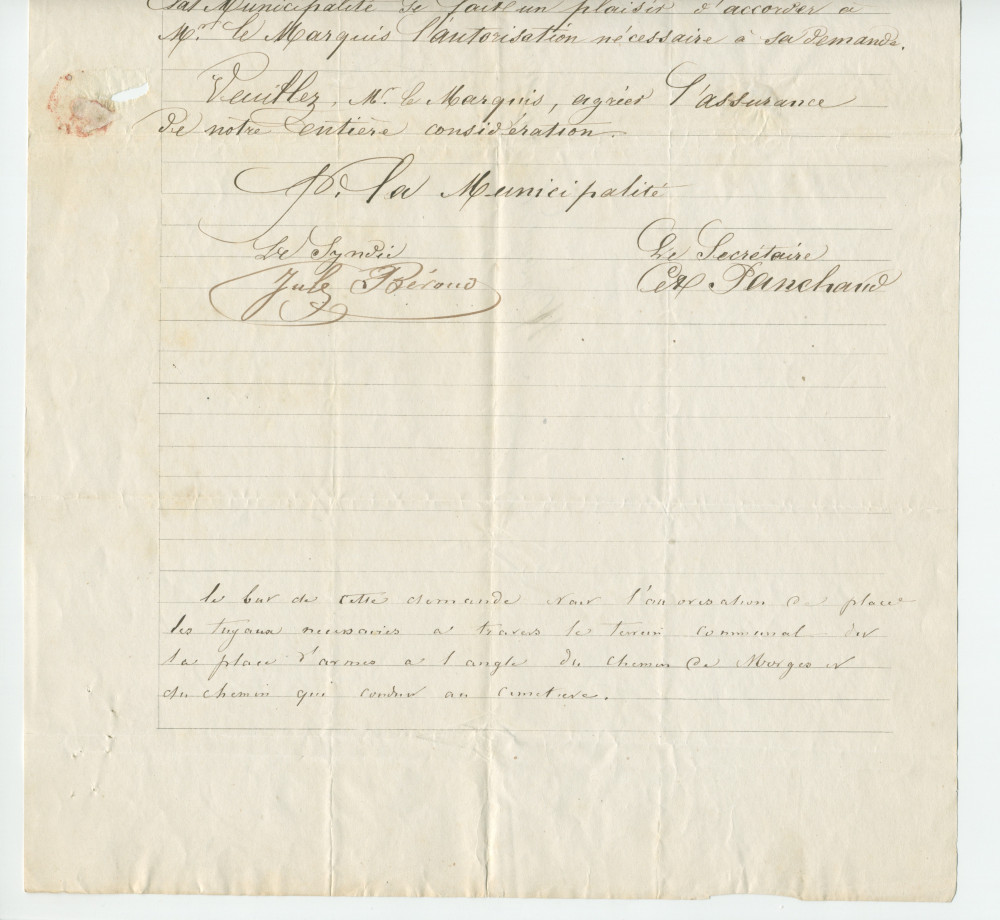 La Municipalité se fait un plaisir d'accorder à
Mr. le Marquis l'autorisation nécessaire à sa demande.
Veuillez, Mr. le Marquis, agréer l'assurance
de notre entière considération.
P. la Municipalité
Le Syndic
Le Secrétaire
Jule Béroud
Panchaud
le but de cette demande était l'autorisation de placer
les tuyaux nécessaires à travers le terrain communal de
la place d'armes à l'angle du chemin de Morges et
du chemin qui conduit au cimetière.